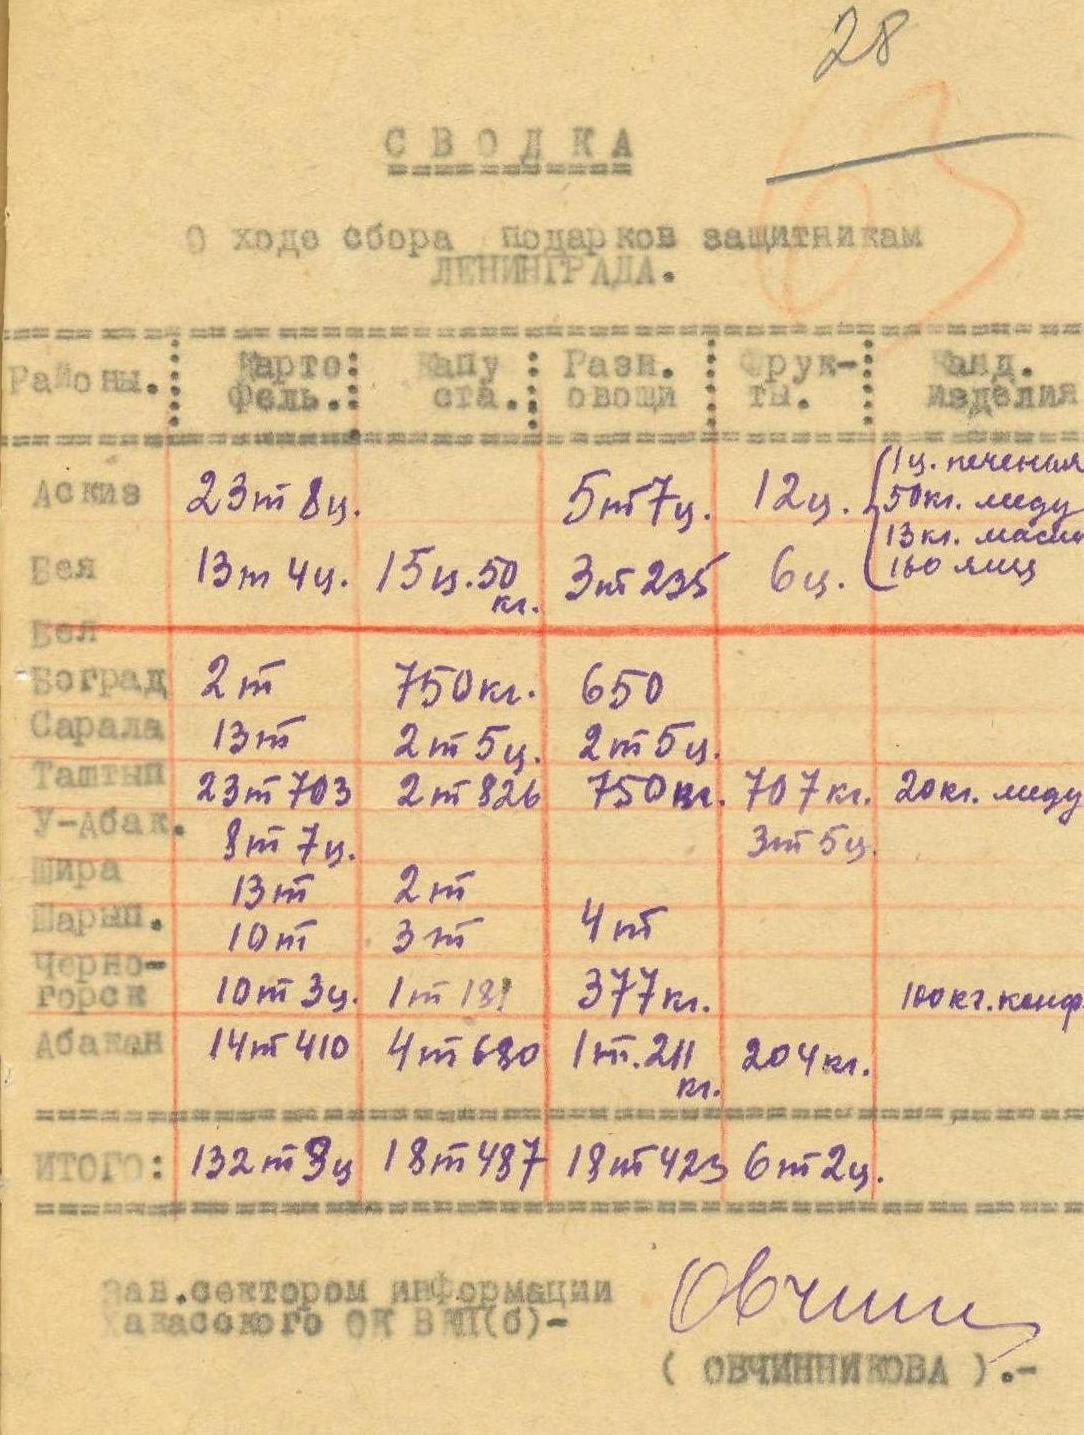 28
63
СВОДКА
О ходе сбора подарков защитникам
ЛЕНИНГРАДА.
Районы. Карто Капу Разн. Фрук- Конд.
фель. ста. овощи ты. изделия
Аскиз 23т 8ц. 5т 7ц. 12ц. 1ц. печения
50кг. меду
13кг. масла
160 яиц
Бея 13т 4ц. 15ц. 50 кг. 3т 235 6ц.
Бея
Боград 2т 750кг. 650
Сарала 13т 2т 5ц. 2т 5ц.
Таштып 23т 703 2т 826 750кг. 707кг. 20кг. меду
У-Абак. 8т 7ц. 3т 5ц.
Шира 13т 2т
Шарып. 10т 3т 4т
Черно-
горск 10т 3ц. 1т 181 377кг. 100кг. конф.
Абакан 14т 410 4т 680 1т. 211 кг. 204кг.
ИТОГО: 132т 8ц 18т 487 18т 423 6т 2ц.
Зав.сектором информации
Хакасского ОК ВКП(б)-
Овчинн
( ОВЧИННИКОВА ).-